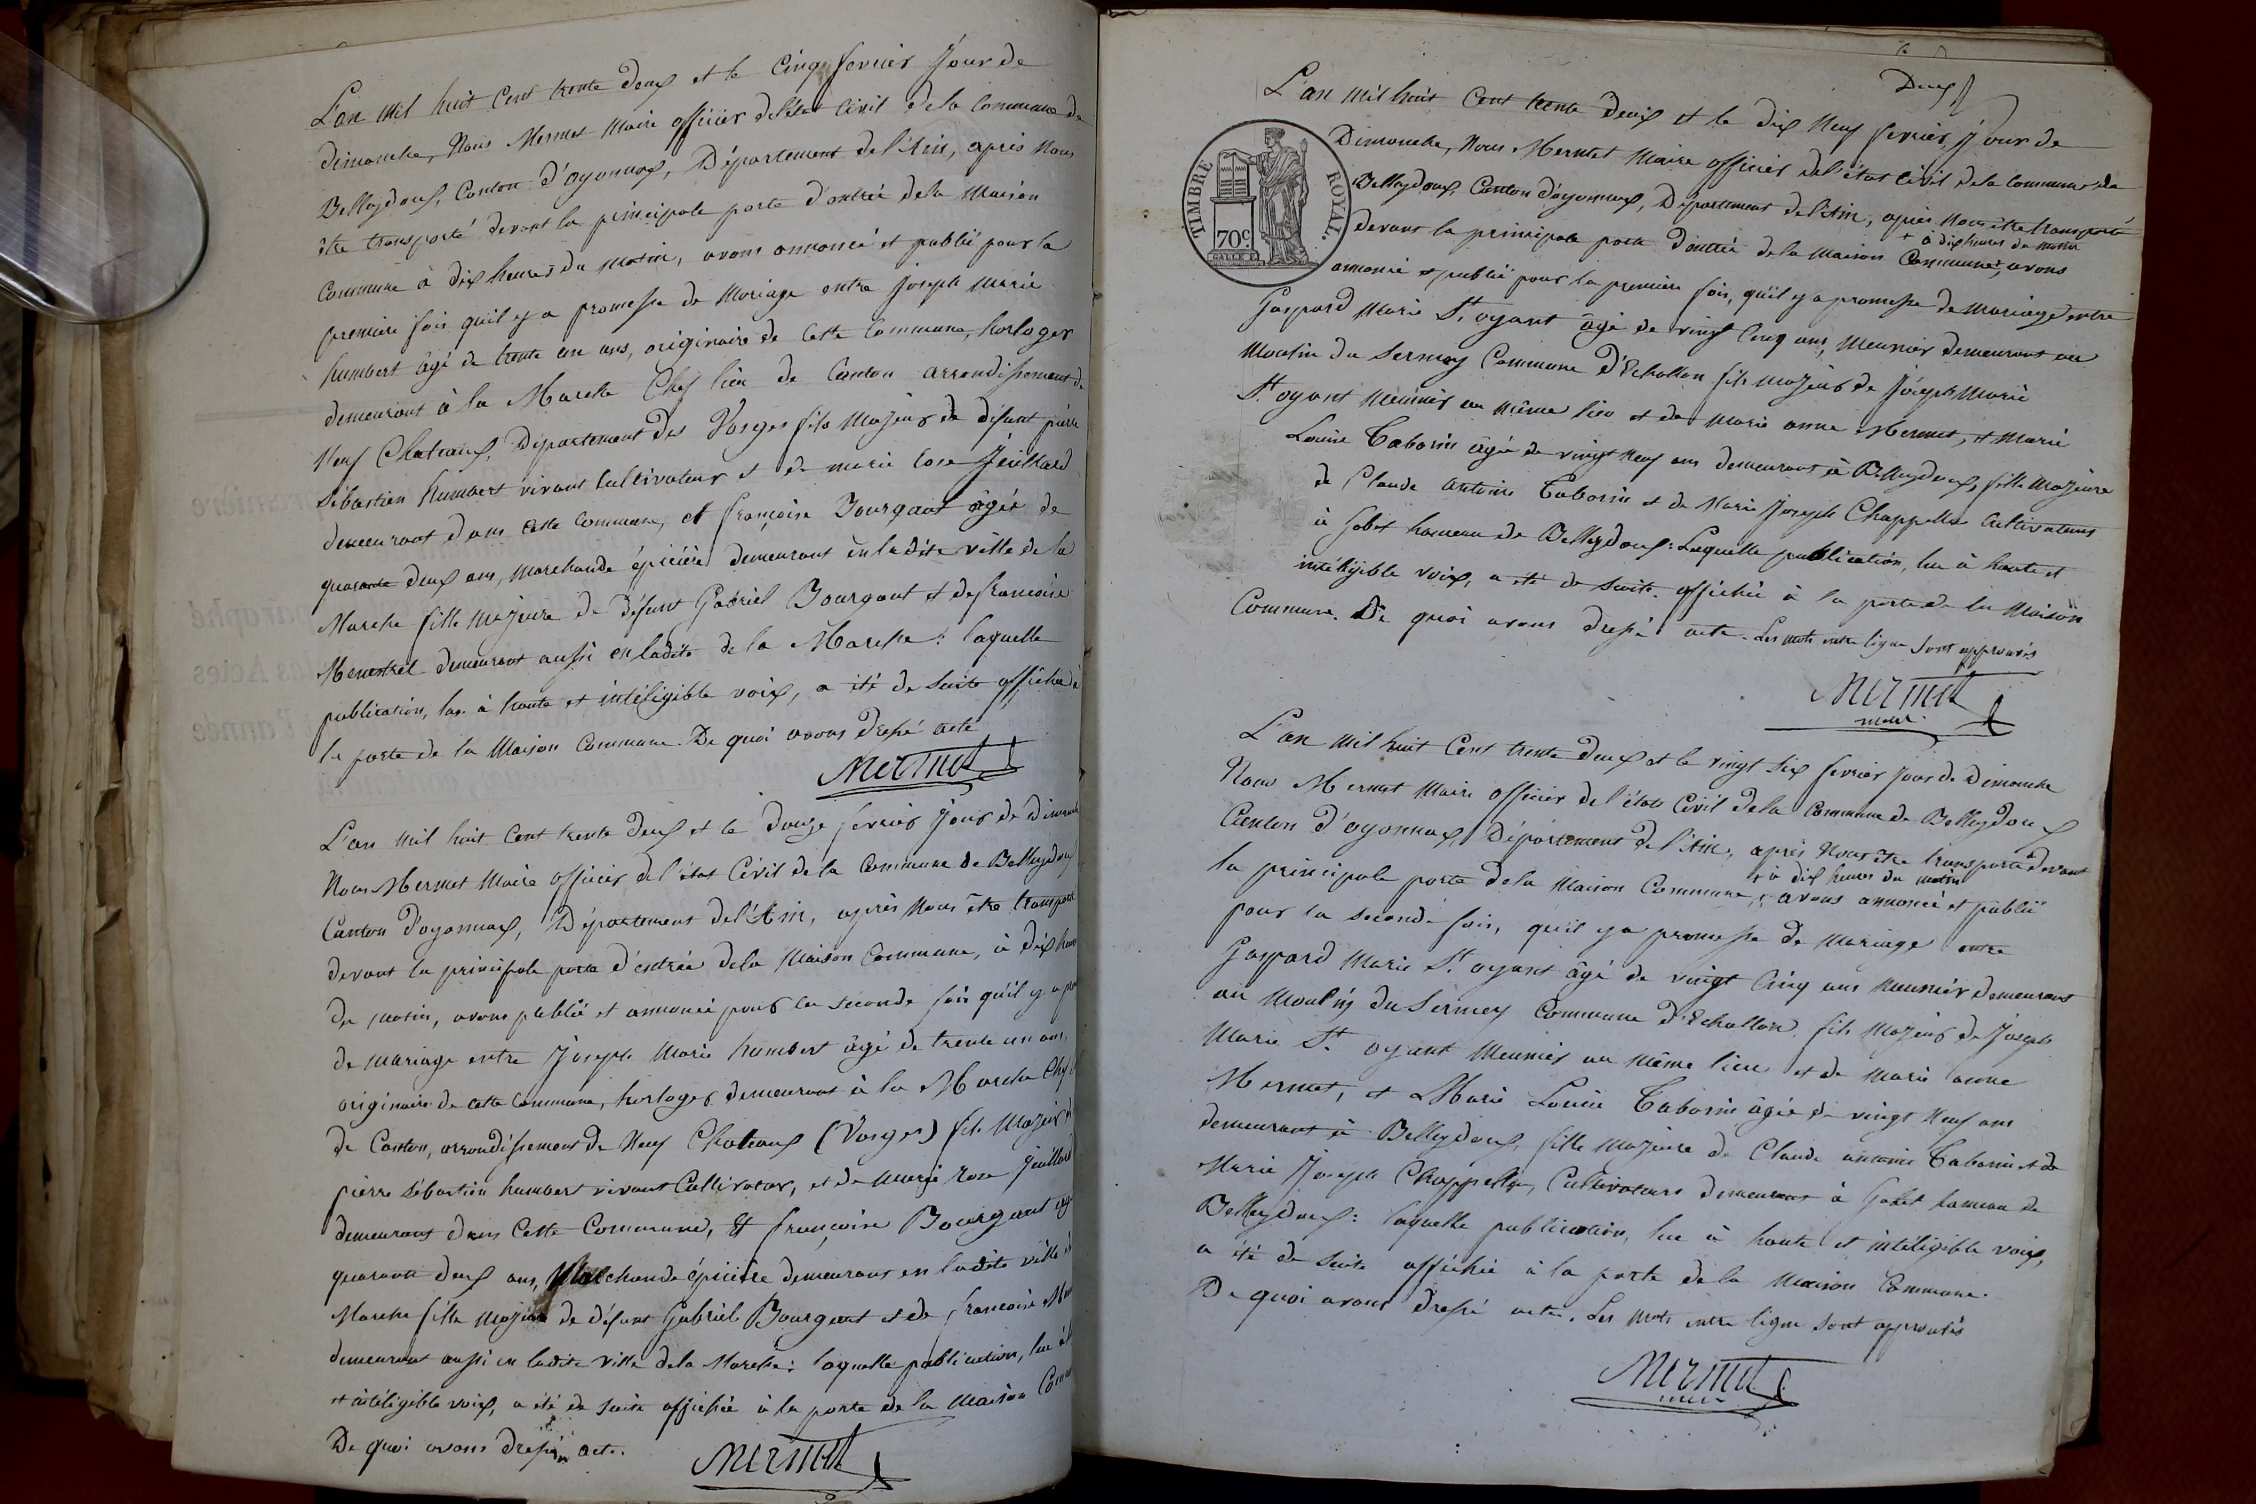 L'an mil huit Cent trente deux et le Cinq fevrier Jour de
dimanche, Nous Mermet Maire officier de l'état Civil de la Commune de
Belleydoux, Canton d'oyonnax, Département de l'Ain, après Nous
être transporté devant la principale porte d'entrée de la Maison
Commune à dix heures du matin, avons annoncé et publié pour la
première fois qu'il y a promesse de Mariage entre Joseph Marie
humbert âgé de trente un ans, originaire de Cette Commune, horloger
demeurant à la Marche Chef lieu de Canton arrondissement de
Neuf Chateaux, Département des Vosges fils Majeur de défunt pierre
Sébastien humbert vivant Cultivateur et de marie rose Juillard
demeurant dans Cette Commune, et françoise Bourgaut âgée de
quarante deux ans, Marchande épicière demeurant en la dite ville de la
Marche fille majeure de défunt Gabriel Bourgaut et de francoise
Menestrel demeurant aussi en ladite de la Marche : laquelle
publication, lue à haute et intéligible voix, a été de suite affichée à
la porte de la Maison Commune. De quoi avons dressé acte
Mermet
L'an mil huit Cent trente deux et le douze fevrier Jour de dimanche
Nous Mermet Maire officier de l'état Civil de la Commune de Belleydoux
Canton d'oyonnax, Département de l'Ain, après Nous être transporté
devant la principale porte d'entrée de la Maison Commune, à dix heures
du matin, avons publié et annoncé pour la seconde fois qu'il y a pro
de mariage entre Joseph Marie humbert âgé de trente un ans,
originaire de cette Commune, horloger demeurant à la Marche Chef l
de Canton, arrondissement de Neuf Chateaux (Vosges) fils Majeur d
pierre Sébastien humbert vivant Cultivateur, et de marie rose Juillard
demeurant dans Cette Commune, Et françoise Bourgaut ag
quarante deux ans, Marchande épicière demeurant en ladite ville d
Marche fille majeure de défunt Gabriel Bourgaut et de francoise M
demeurant aussi en ladite ville de la Marche : laquelle publication, lue à
et intéligible voix, a été de suite affichée à la porte de la Maison Com
De quoi avons dressé acte.
Mermet
Deux
L'an mil huit Cent trente deux et le dix Neuf fevrier Jour de
Dimanche, Nous Mermet Maire officier de l'état Civil de la Commune de
Belleydoux Canton d'oyonnax, Département de l'Ain, après Nous être transporté
+ à dix heures du matin
devant la principale porte d'entrée de la Maison Commune+, avons
annoncé et publié pour la première fois, qu'il y a promesse de Mariage entre
TIMBRE ROYAL.
70c
Gaspard Marie St. oyant âgé de vingt Cinq ans, Meunier demeurant au
Moulin du Sermey Commune d'Echallon fils majeur de Joseph Marie
St. oyant Meunier au même lieu et de Marie anne Mermet, et Marie
Louise Taborin âgée de vingt Neuf ans demeurant à Belleydoux, fille Majeure
de Claude antoine Taborin et de Marie Joseph Chappellu Cultivateurs
à Gobet hameau de Belleydoux : Laquelle publication, lue à haute et
intéligible voix, a été de suite affichée à la porte de la Maison
Commune. De quoi avons dressé acte. Les mots entre ligne sont approuvés
Mermet
maire
L'an mil huit Cent trente deux et le vingt Six fevrier Jour de Dimanche
Nous Mermet Maire officier de l'état Civil de la Commune de Belleydoux
Canton d'oyonnax, Département de l'Ain, après Nous être transporté devant
+ à dix heures du matin
la principale porte de la Maison Commune,+ avons annoncé et publié
pour la seconde fois, qu'il y a promesse de Mariage entre
Gaspard Marie St. oyant âgé de vingt Cinq ans Meunier demeurant
au Moulin du Sermey Commune d'Echallon fils Majeur de Joseph
Marie St. oyant Meunier au même lieu et de Marie anne
Mermet, et Marie Louise Taborin âgée de vingt Neuf ans
demeurant à Belleydoux, fille Majeure de Claude antoine Taborin et de
Marie Joseph Chappellu, Cultivateurs demeurant à Gobet hameau de
Belleydoux : laquelle publication, lue à haute et intéligible voix,
a été de suite affichée à la porte de la Maison Commune.
De quoi avons dressé acte. Les mots entre ligne sont approuvés
Mermet
maire